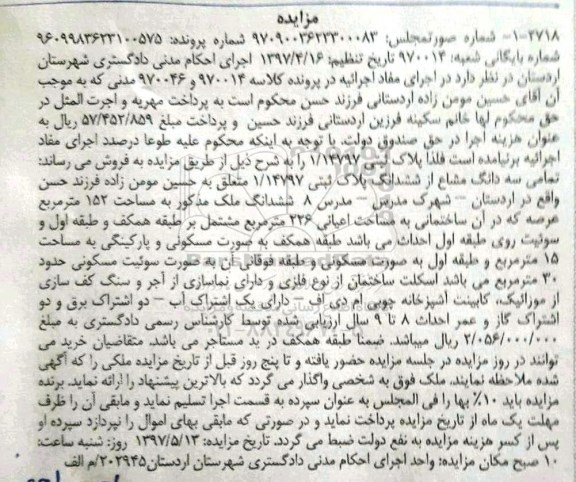 مزایده
۱-۲۷۱۸- شماره صورتمجلس: ۹۷۰۹۰۰۳۶۲۲۳۰۰۰۸۳ شماره پرونده: ۹۶۰۹۹۸۳۶۲۳۱۰۰۵۷۵
شماره بایگانی شعبه: ۹۷۰۰۱۴ تاریخ تنظیم: ۱۳۹۷/۴/۱۶ اجرای احکام مدنی دادگستری شهرستان
اردستان در نظر دارد در اجرای مفاد اجرائیه در پرونده کلاسه ۹۷۰۰۱۴ و ۹۷۰۰۴۶ مدنی که به موجب
آن آقای حسین مومن زاده اردستانی فرزند حسن محکوم است به پرداخت مهریه و اجرت المثل در
حق محکوم لها خانم سکینه فرزین اردستانی فرزند حسین و پرداخت مبلغ ۵۷/۴۵۲/۸۵۹ ریال به
عنوان هزینه اجرا در حق صندوق دولت، با توجه به اینکه محکوم علیه طوعا درصدد اجرای مفاد
اجرائیه برنیامده است فلذا پلاک ثبتی ۱/۱۴۷۹۷ را به شرح ذیل از طریق مزایده به فروش می رساند:
تمامی سه دانگ مشاع از ششدانگ پلاک ثبتی ۱/۱۴۷۹۷ متعلق به حسین مومن زاده فرزند حسن
واقع در اردستان – شهرک مدرس – مدرس ۸ ششدانگ ملک مذکور به مساحت ۱۵۲ مترمربع
عرصه که در آن ساختمانی به مساحت اعیانی ۲۲۶ مترمربع مشتمل بر طبقه همکف و طبقه اول و
سوئیت روی طبقه اول احداث می باشد طبقه همکف به صورت مسکونی و پارکینگی به مساحت
۱۵ مترمربع و طبقه اول به صورت مسکونی و طبقه فوقانی آن به صورت سوئیت مسکونی حدود
۳۰ مترمربع می باشد اسکلت ساختمان از نوع فلزی و دارای نماسازی از آجر و سنگ کف سازی
از موزائیک، کابینت آشپزخانه چوبی ام دی اف – دارای یک اشتراک آب – دو اشتراک برق و دو
اشتراک گاز و عمر احداث ۸ تا ۹ سال ارزیابی شده توسط کارشناس رسمی دادگستری به مبلغ
۲/۰۵۶/۰۰۰/۰۰۰ ریال میباشد. ضمنا طبقه همکف در ید مستأجر می باشد. متقاضیان خرید می
توانند در روز مزایده در جلسه مزایده حضور یافته و تا پنج روز قبل از تاریخ مزایده ملکی را که آگهی
شده ملاحظه نمایند. ملک فوق به شخصی واگذار می گردد که بالاترین پیشنهاد را ارائه نماید. برنده
مزایده باید ۱۰٪ بها را فی المجلس به عنوان سپرده به قسمت اجرا تسلیم نماید و مابقی آن را ظرف
مهلت یک ماه از تاریخ مزایده پرداخت نماید و در صورتی که مابقی بهای اموال را نپردازد سپرده او
پس از کسر هزینه مزایده به نفع دولت ضبط می گردد. تاریخ مزایده: ۱۳۹۷/۵/۱۳ روز: شنبه ساعت:
۱۰ صبح مکان مزایده: واحد اجرای احکام مدنی دادگستری شهرستان اردستان ۲۰۲۹۴۵/م الف